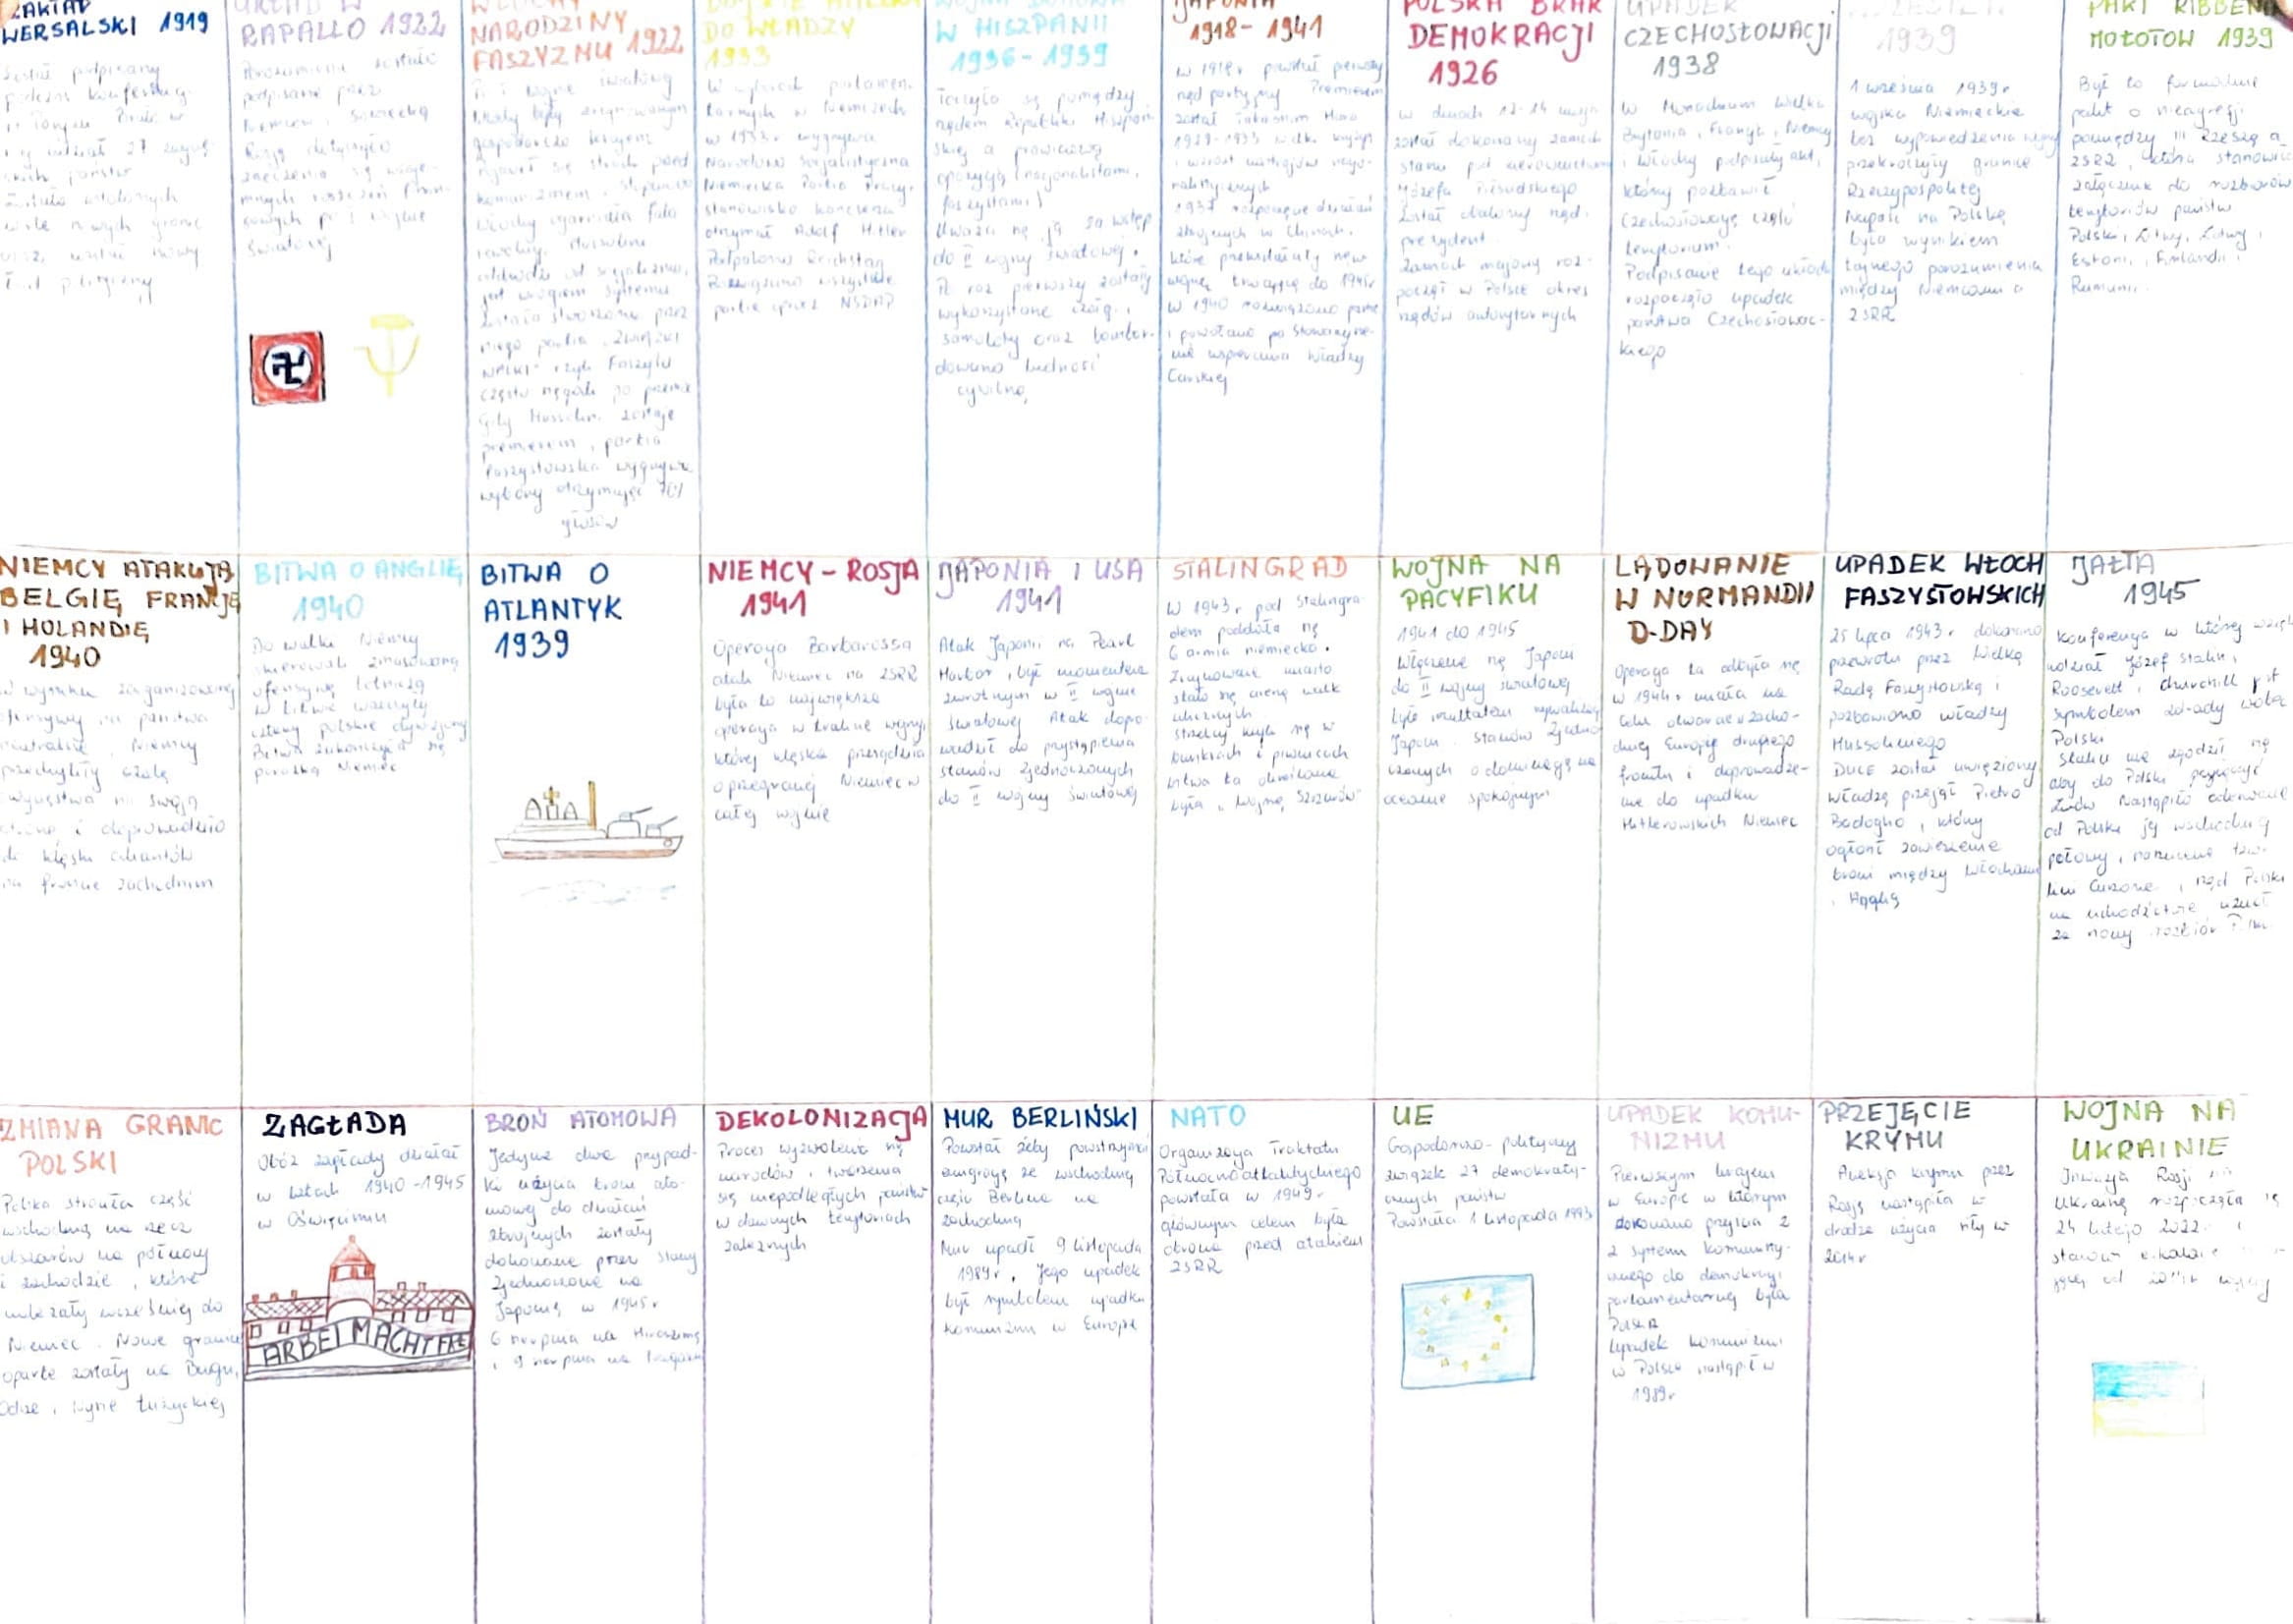 TRAKTAT
WERSALSKI 1919
podczas konferencji
UKŁAD W
RAPALLO 1922
Porozumienie zostało
podpisane przez
Niemcy i Sowiecką
Rosję dotyczyło
WŁOCHY
NARODZINY
FASZYZMU 1922
gospodarczo kryzys
pojawił się strach przed
komunizmem i stopniowo
Włochy ogarnęła fala
rewolucji. Mussolini
jest wrogiem systemu
została stworzona przez
niego partia "Związki
WALKI" czyli Faszyści
Gdy Mussolini zostaje
premierem, partia
faszystowska wygrywa
wybory otrzymując 70%
głosów
DOJŚCIE HITLERA
DO WŁADZY
1933
W wyborach parlamen
tarnych w Niemczech
w 1933r wygrywa
Narodowo Socjalistyczna
Niemiecka Partia Pracy,
stanowisko kanclerza
otrzymał Adolf Hitler
Podpalono Reichstag
Rozwiązano wszystkie
partie oprócz NSDAP
WOJNA DOMOWA
W HISZPANII
1936 - 1939
Toczyła się pomiędzy
rządem Republiki Hiszpań
skiej a prawicową
opozycją (nacjonalistami,
faszystami)
Uważa się ją za wstęp
do II wojny światowej.
Po raz pierwszy zostały
wykorzystane czołgi,
samoloty oraz bombar-
dowano ludność
cywilną
JAPONIA
1918 - 1941
w 1918r powstał pierwszy
rząd partyjny Premierem
został Takashim Hara
1929-1933 wielki kryzys
i wzrost nastrojów nacjo-
nalistycznych
1937 rozpoczęcie działań
zbrojnych w Chinach,
wojnę trwającą do 1945r
i powołano po Stowarzysze-
nie wspierania Władzy
Carskiej
POLSKA BRAK
DEMOKRACJI
1926
w dniach 12-14 maja
został dokonany zamach
stanu pod kierownictwem
Józefa Piłsudskiego
Został obalony rząd i
prezydent.
Zamach majowy roz-
począł w Polsce okres
rządów autorytarnych
UPADEK
CZECHOSŁOWACJI
1938
W Monachium Wielka
Brytania, Francja, Niemcy
i Włochy podpisały akt,
który pozbawił
Czechosłowację części
terytorium.
Podpisanie tego układu
rozpoczęło upadek
państwa Czechosłowac-
kiego
1939
1 września 1939r
wojska Niemieckie
bez wypowiedzenia wojny
przekroczyły granice
Rzeczypospolitej
Napaść na Polskę
była wynikiem
tajnego porozumienia
między Niemcami a
ZSRR
PAKT RIBBEN
MOŁOTOW 1939
Był to formalnie
pakt o nieagresji
pomiędzy III Rzeszą a
ZSRR, która stanowił
załącznik do rozbiorów
terytoriów państw
Polski, Litwy, Łotwy i
Estonii, Finlandii i
Rumunii.
NIEMCY ATAKUJĄ
BELGIĘ FRANCJĘ
I HOLANDIĘ
1940
W wyniku zorganizowanej
ofensywy na państwa
neutralne, Niemcy
przechyliły szalę
zwycięstwa na swoją
stronę i doprowadziło
do klęski aliantów
na froncie zachodnim
BITWA O ANGLIĘ
1940
Do walki Niemcy
skierowali zmasowaną
ofensywę lotniczą
W bitwie walczyły
cztery polskie dywizjony
Bitwa zakończyła się
porażką Niemiec
BITWA O
ATLANTYK
1939
NIEMCY - ROSJA
1941
Operacja Barbarossa
atak Niemiec na ZSRR
była to największa
operacja w trakcie wojny,
której klęska przesądziła
o przegranej Niemiec w
całej wojnie
JAPONIA I USA
1941
Atak Japonii na Pearl
Harbor, był momentem
zwrotnym w II wojnie
światowej Atak dopro-
wadził do przystąpienia
Stanów Zjednoczonych
do II wojny światowej
STALINGRAD
W 1943r pod Stalingra-
dem poddała się
6 armia niemiecka.
Zrujnowane miasto
stało się areną walk
ulicznych
strzelcy kryli się w
bunkrach i piwnicach
bitwa ta określana
była "Wojną Szczurów"
WOJNA NA
PACYFIKU
1941 do 1945
Włączenie się Japonii
do II wojny światowej
było rezultatem rywalizacji
Japonii i Stanów Zjedno
czonych o dominację na
oceanie spokojnym
LĄDOWANIE
W NORMANDII
D-DAY
Operacja ta odbyła się
w 1944r miała na
celu otwarcie w zacho-
dniej Europie drugiego
frontu i doprowadze-
nie do upadku
Hitlerowskich Niemiec
UPADEK WŁOCH
FASZYSTOWSKICH
25 lipca 1943r dokonano
przewrotu przez Wielką
Radę Faszystowską i
pozbawiono władzy
Mussoliniego
DUCE został uwięziony
Władzę przejął Pietro
Badoglio, który
ogłosił zawieszenie
broni między Włochami
i Anglią
JAŁTA
1945
Konferencja w której wzięli
udział Józef Stalin,
Roosevelt i Churchill jest
symbolem zdrady wobec
Polski
Stalin nie zgodził się
aby do Polski przyłączyć
Lwów Nastąpiło oderwanie
od Polski jej wschodniej
połowy, narzucenie tzw.
linii Curzona, rząd Polski
na uchodźctwie uznał
za nowy rozbiór Polski
ZMIANA GRANIC
POLSKI
Polska straciła część
wschodnią na rzecz
obszarów na północy
i zachodzie, które
należały wcześniej do
Niemiec. Nowe granice
oparte zostały na Bugu,
Odrze i Nysie Łużyckiej
ZAGŁADA
Obóz zagłady działał
w latach 1940-1945
w Oświęcimiu
ARBEI MACHT FREI
BROŃ ATOMOWA
Jedyne dwa przypad-
ki użycia broni ato-
mowej do działań
zbrojnych zostały
dokonane przez Stany
Zjednoczone na
Japonię w 1945r
6 sierpnia na Hiroszimę
i 9 sierpnia na Nagasaki
DEKOLONIZACJA
Proces wyzwolenia się
narodów i tworzenia
się niepodległych państw
w dawnych terytoriach
zależnych
MUR BERLIŃSKI
Powstał żeby powstrzymać
emigrację ze wschodniej
części Berlina na
zachodnią
Mur upadł 9 listopada
1989r. Jego upadek
był symbolem upadku
komunizmu w Europie
NATO
Organizacja Traktatu
Północnoatlantyckiego
powstała w 1949r
głównym celem była
obrona przed atakiem
ZSRR
UE
Gospodarczo-polityczny
związek 27 demokraty-
cznych państw
Powstała 1 listopada 1993
UPADEK KOMU-
NIZMU
Pierwszym krajem
w Europie w którym
dokonano przejścia z
z systemu komunisty-
cznego do demokracji
parlamentarnej była
Polska
Upadek komunizmu
w Polsce nastąpił w
1989r
PRZEJĘCIE
KRYMU
Aneksja Krymu przez
Rosję nastąpiła w
drodze użycia siły w
2014r
WOJNA NA
UKRAINIE
Inwazja Rosji na
Ukrainę rozpoczęła się
24 lutego 2022r i